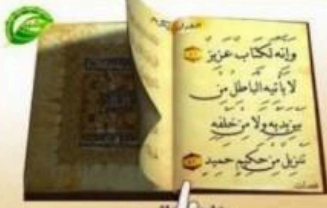 القرآن الكريم
وإنه لكتاب عزيز
لا ياتيه الباطل من
بين يديه ولا من خلفه
تنزيل من حكيم حميد